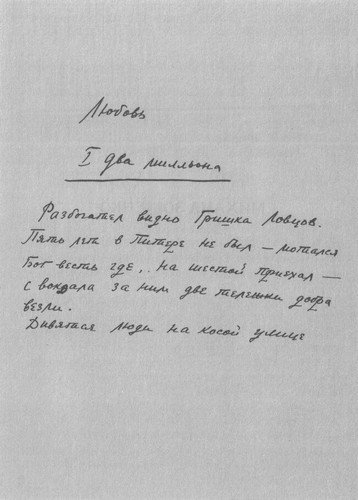 Любовь
I два миллиона
Разбогател видно Гришка Ловцов.
Пять лет в Питере не был – мотался
Бог весть где, на шестой приехал –
с вокзала за ним две тележки добра
везли.
Дивятся люди на косой улице